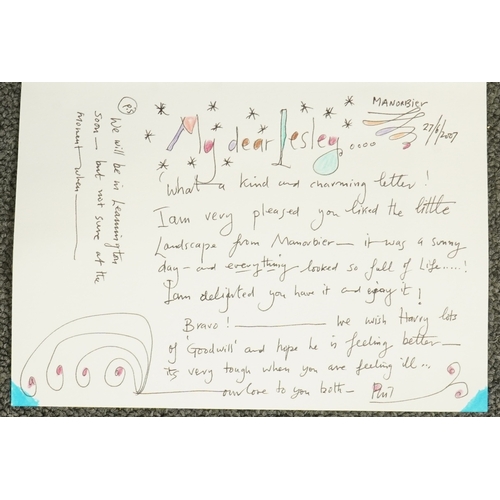 MANORBIER
27/6/2007
My dear Lesley.....
What a kind and charming letter!
I am very pleased you liked the little
Landscape from Manorbier — it was a sunny
day — and everything looked so full of life.....!
I am delighted you have it and enjoy it!
Bravo! — We wish Harry lots
of 'Goodwill' and hope he is feeling better —
its very tough when you are feeling ill...
our love to you both —
P.S.
We will be in Leamington
soon — but not sure at the
moment — when —